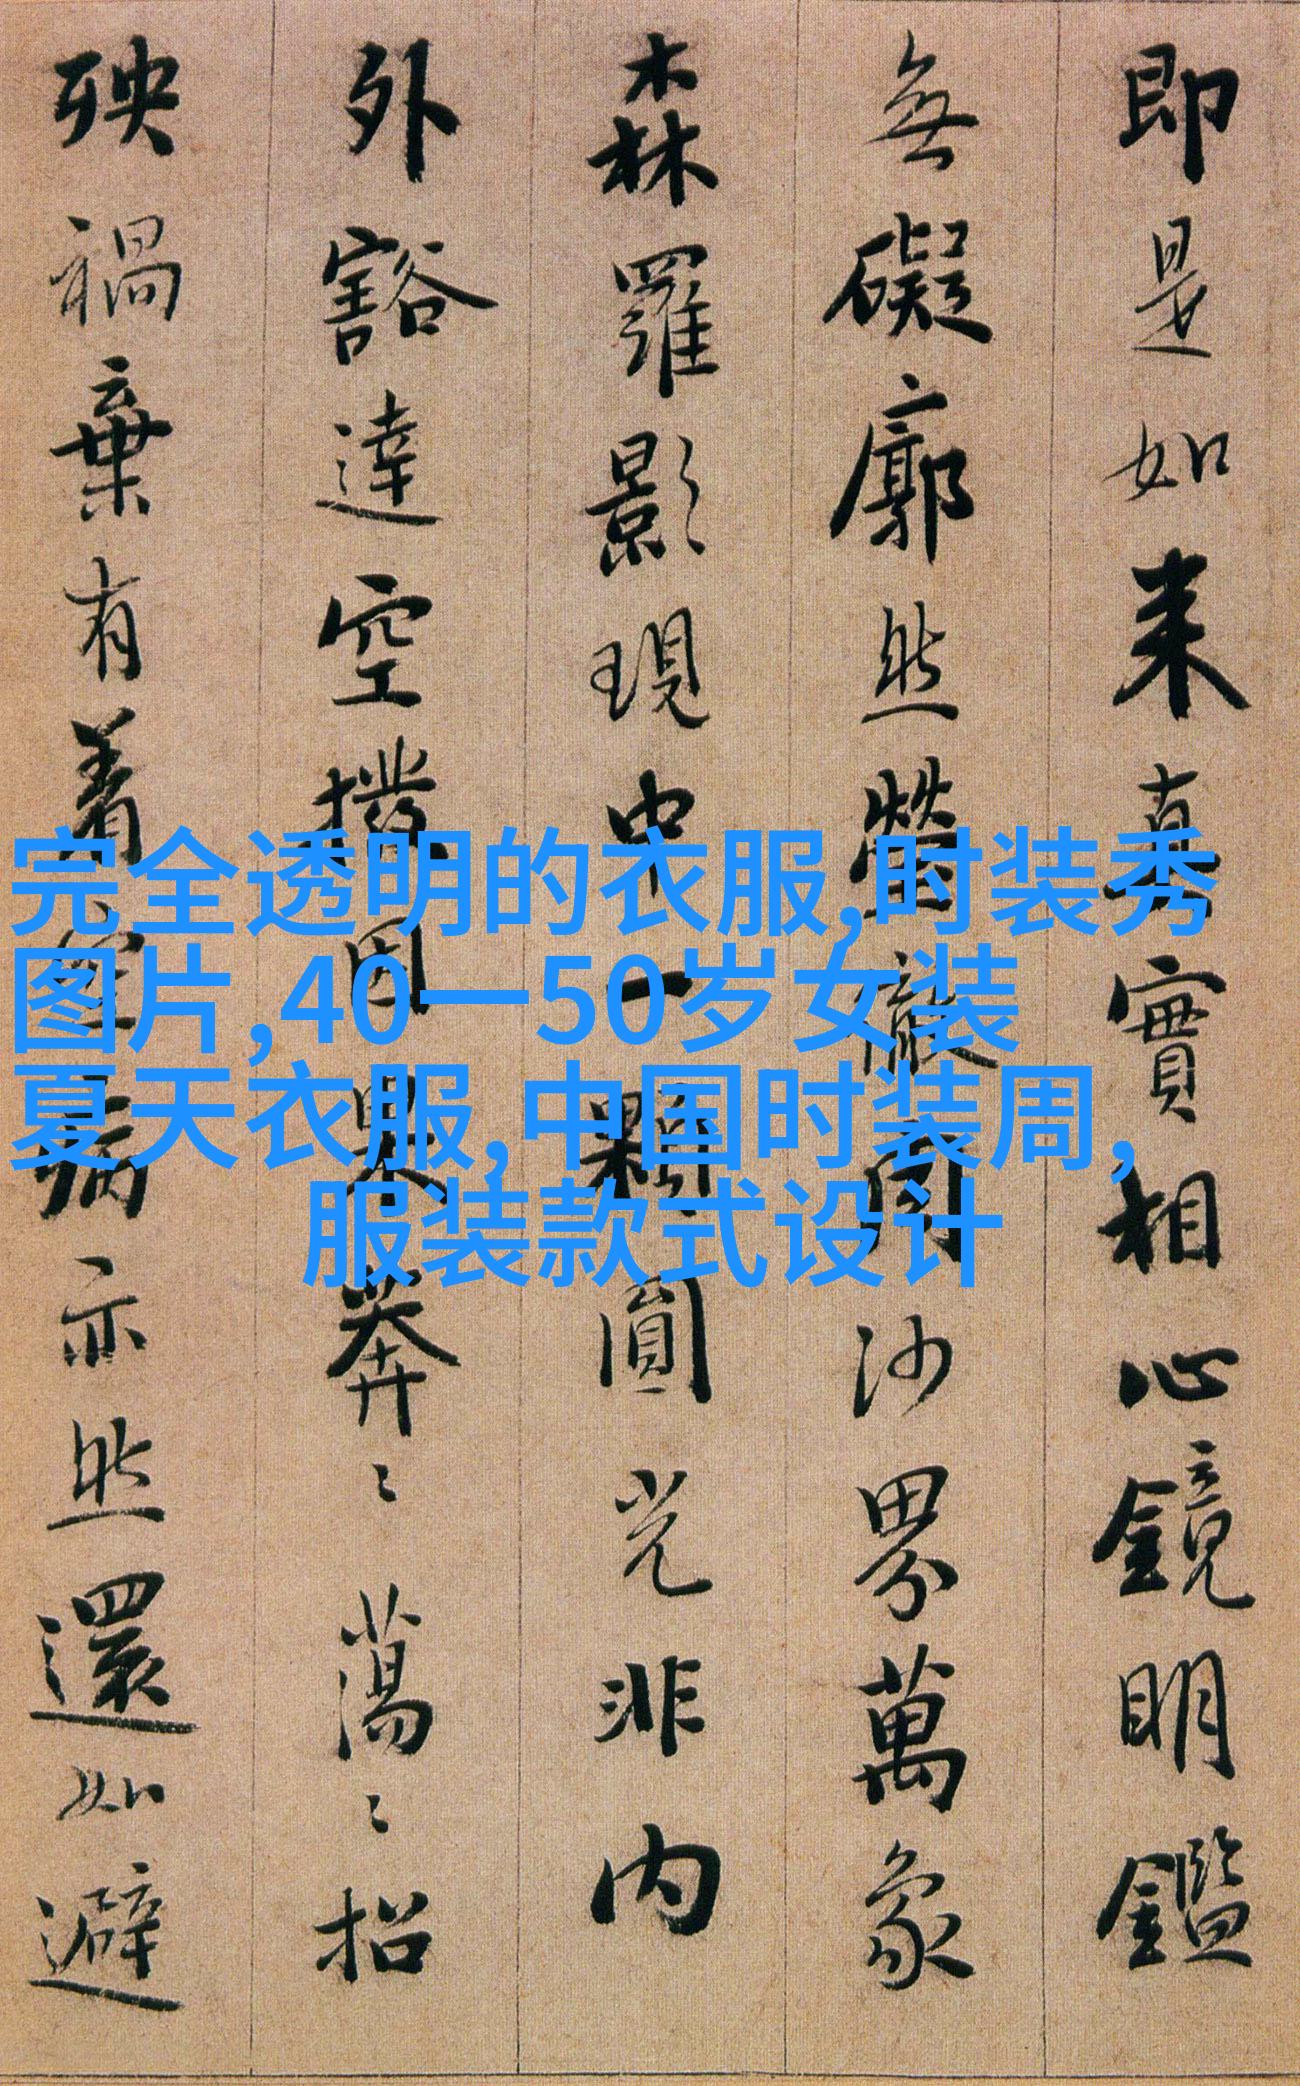 即是如来真實相心鏡明鑑
無礙廓然瑩徹周沙界萬象
森羅影現中一顆圓光非内
外豁達空撥因果莽〻蕩〻招
殃禍棄有着空病亦然還如避
完全透明的衣服,时装秀
图片,40一50岁女装
夏天衣服,中国时装周,
服装款式设计